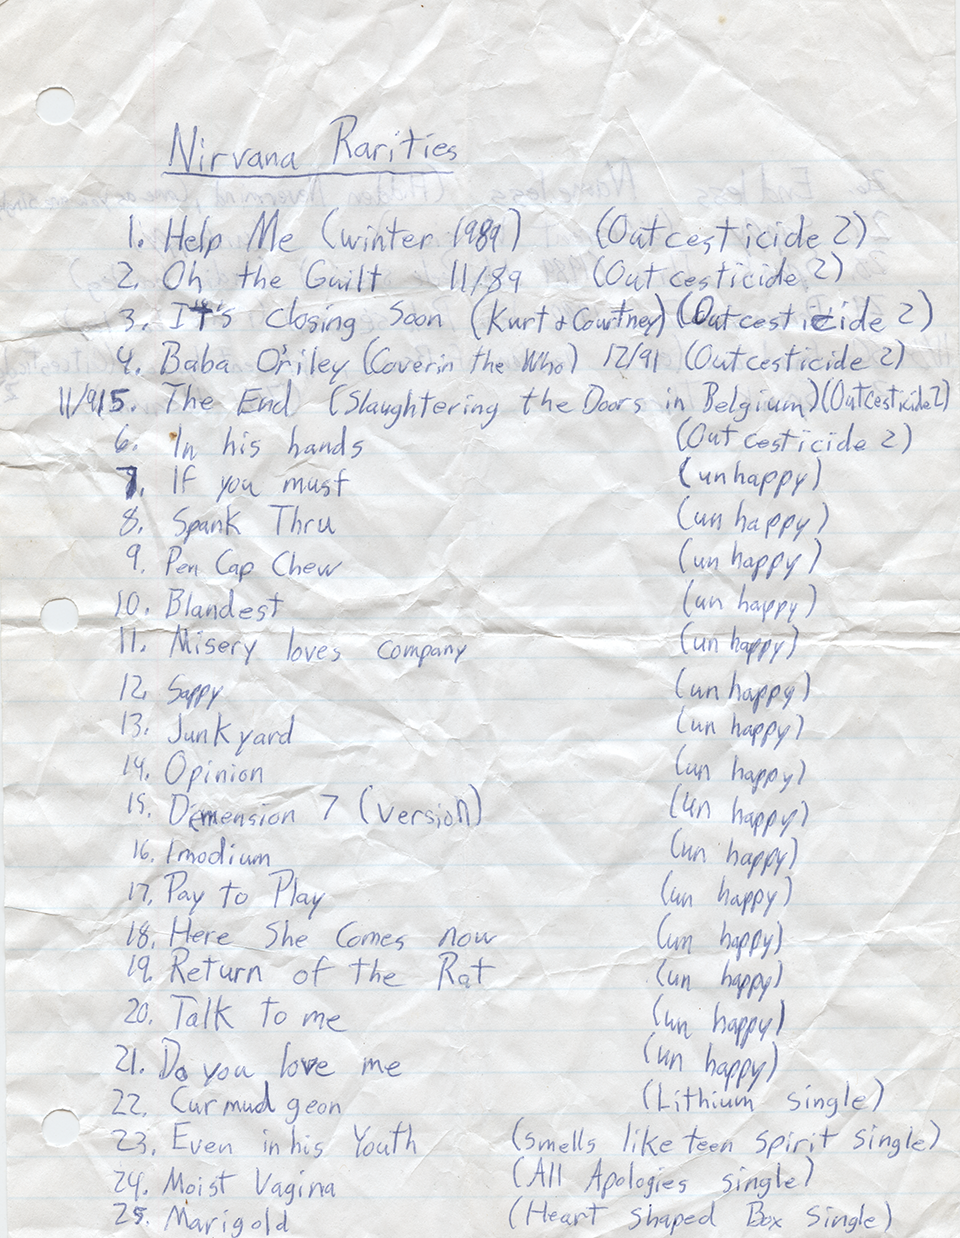 Nirvana Rarities
1. Help Me (winter 1989) (Outcesticide 2)
2. Oh the Guilt 11/89 (Outcesticide 2)
3. It's closing Soon (Kurt & Courtney) (Outcesticide 2)
4. Baba O'riley (Coverin the Who) 12/91 (Outcesticide 2)
11/91 5. The End (Slaughtering the Doors in Belgium) (Outcesticide 2)
6. In his hands (Outcesticide 2)
7. If you must (unhappy)
8. Spank Thru (unhappy)
9. Pen Cap Chew (unhappy)
10. Blandest (unhappy)
11. Misery loves company (unhappy)
12. Sappy (unhappy)
13. Junkyard (unhappy)
14. Opinion (unhappy)
15. Dimension 7 (version) (unhappy)
16. Imodium (unhappy)
17. Pay to Play (unhappy)
18. Here She Comes now (unhappy)
19. Return of the Rat (unhappy)
20. Talk to me (unhappy)
21. Do you love me (unhappy)
22. Curmudgeon (Lithium single)
23. Even in his Youth (smells like teen spirit single)
24. Moist Vagina (All Apologies single)
25. Marigold (Heart Shaped Box Single)